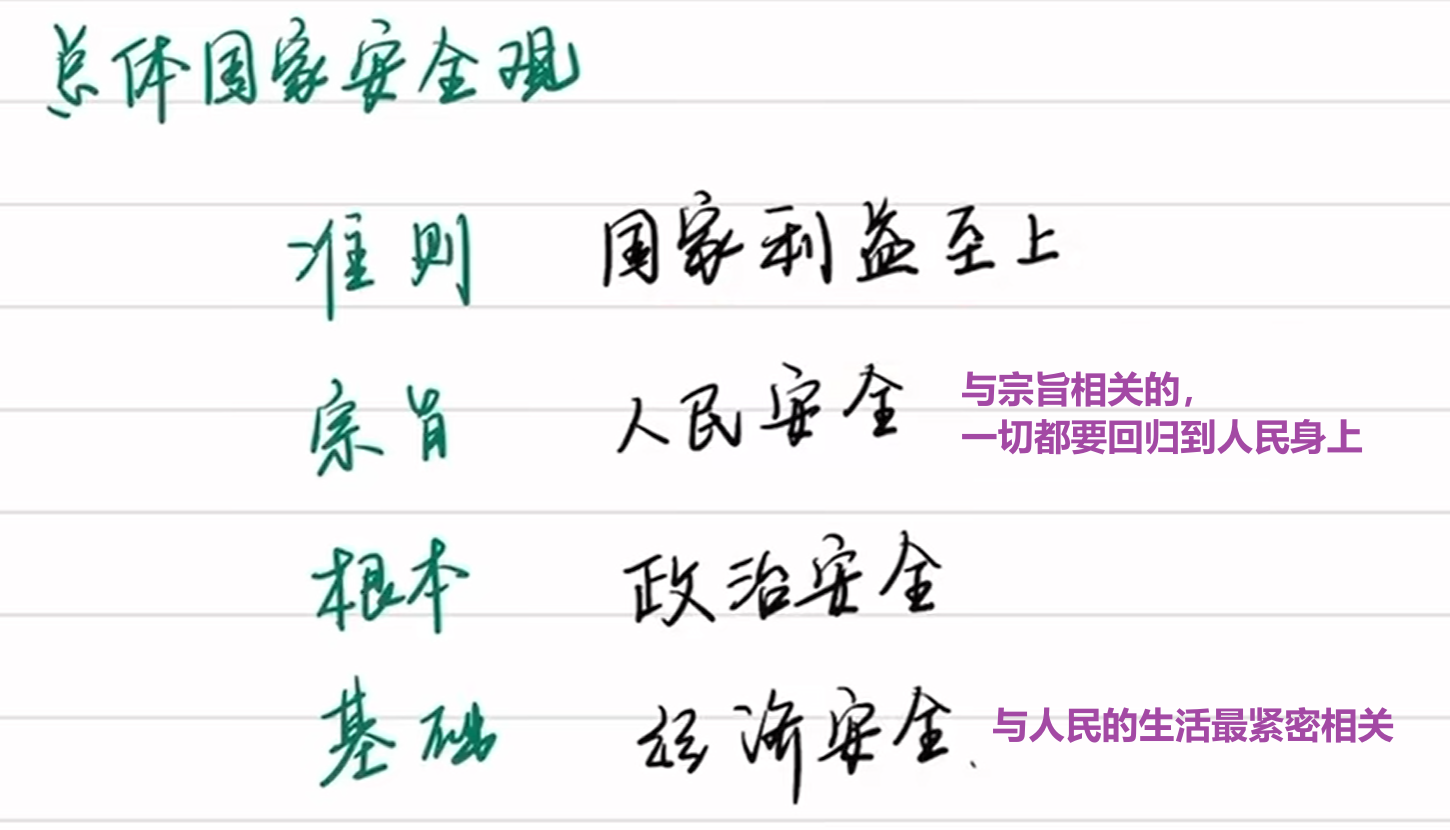 总体国家安全观
准则 国家利益至上
宗旨 人民安全 与宗旨相关的，
一切都要回归到人民身上
根本 政治安全
基础 经济安全. 与人民的生活最紧密相关